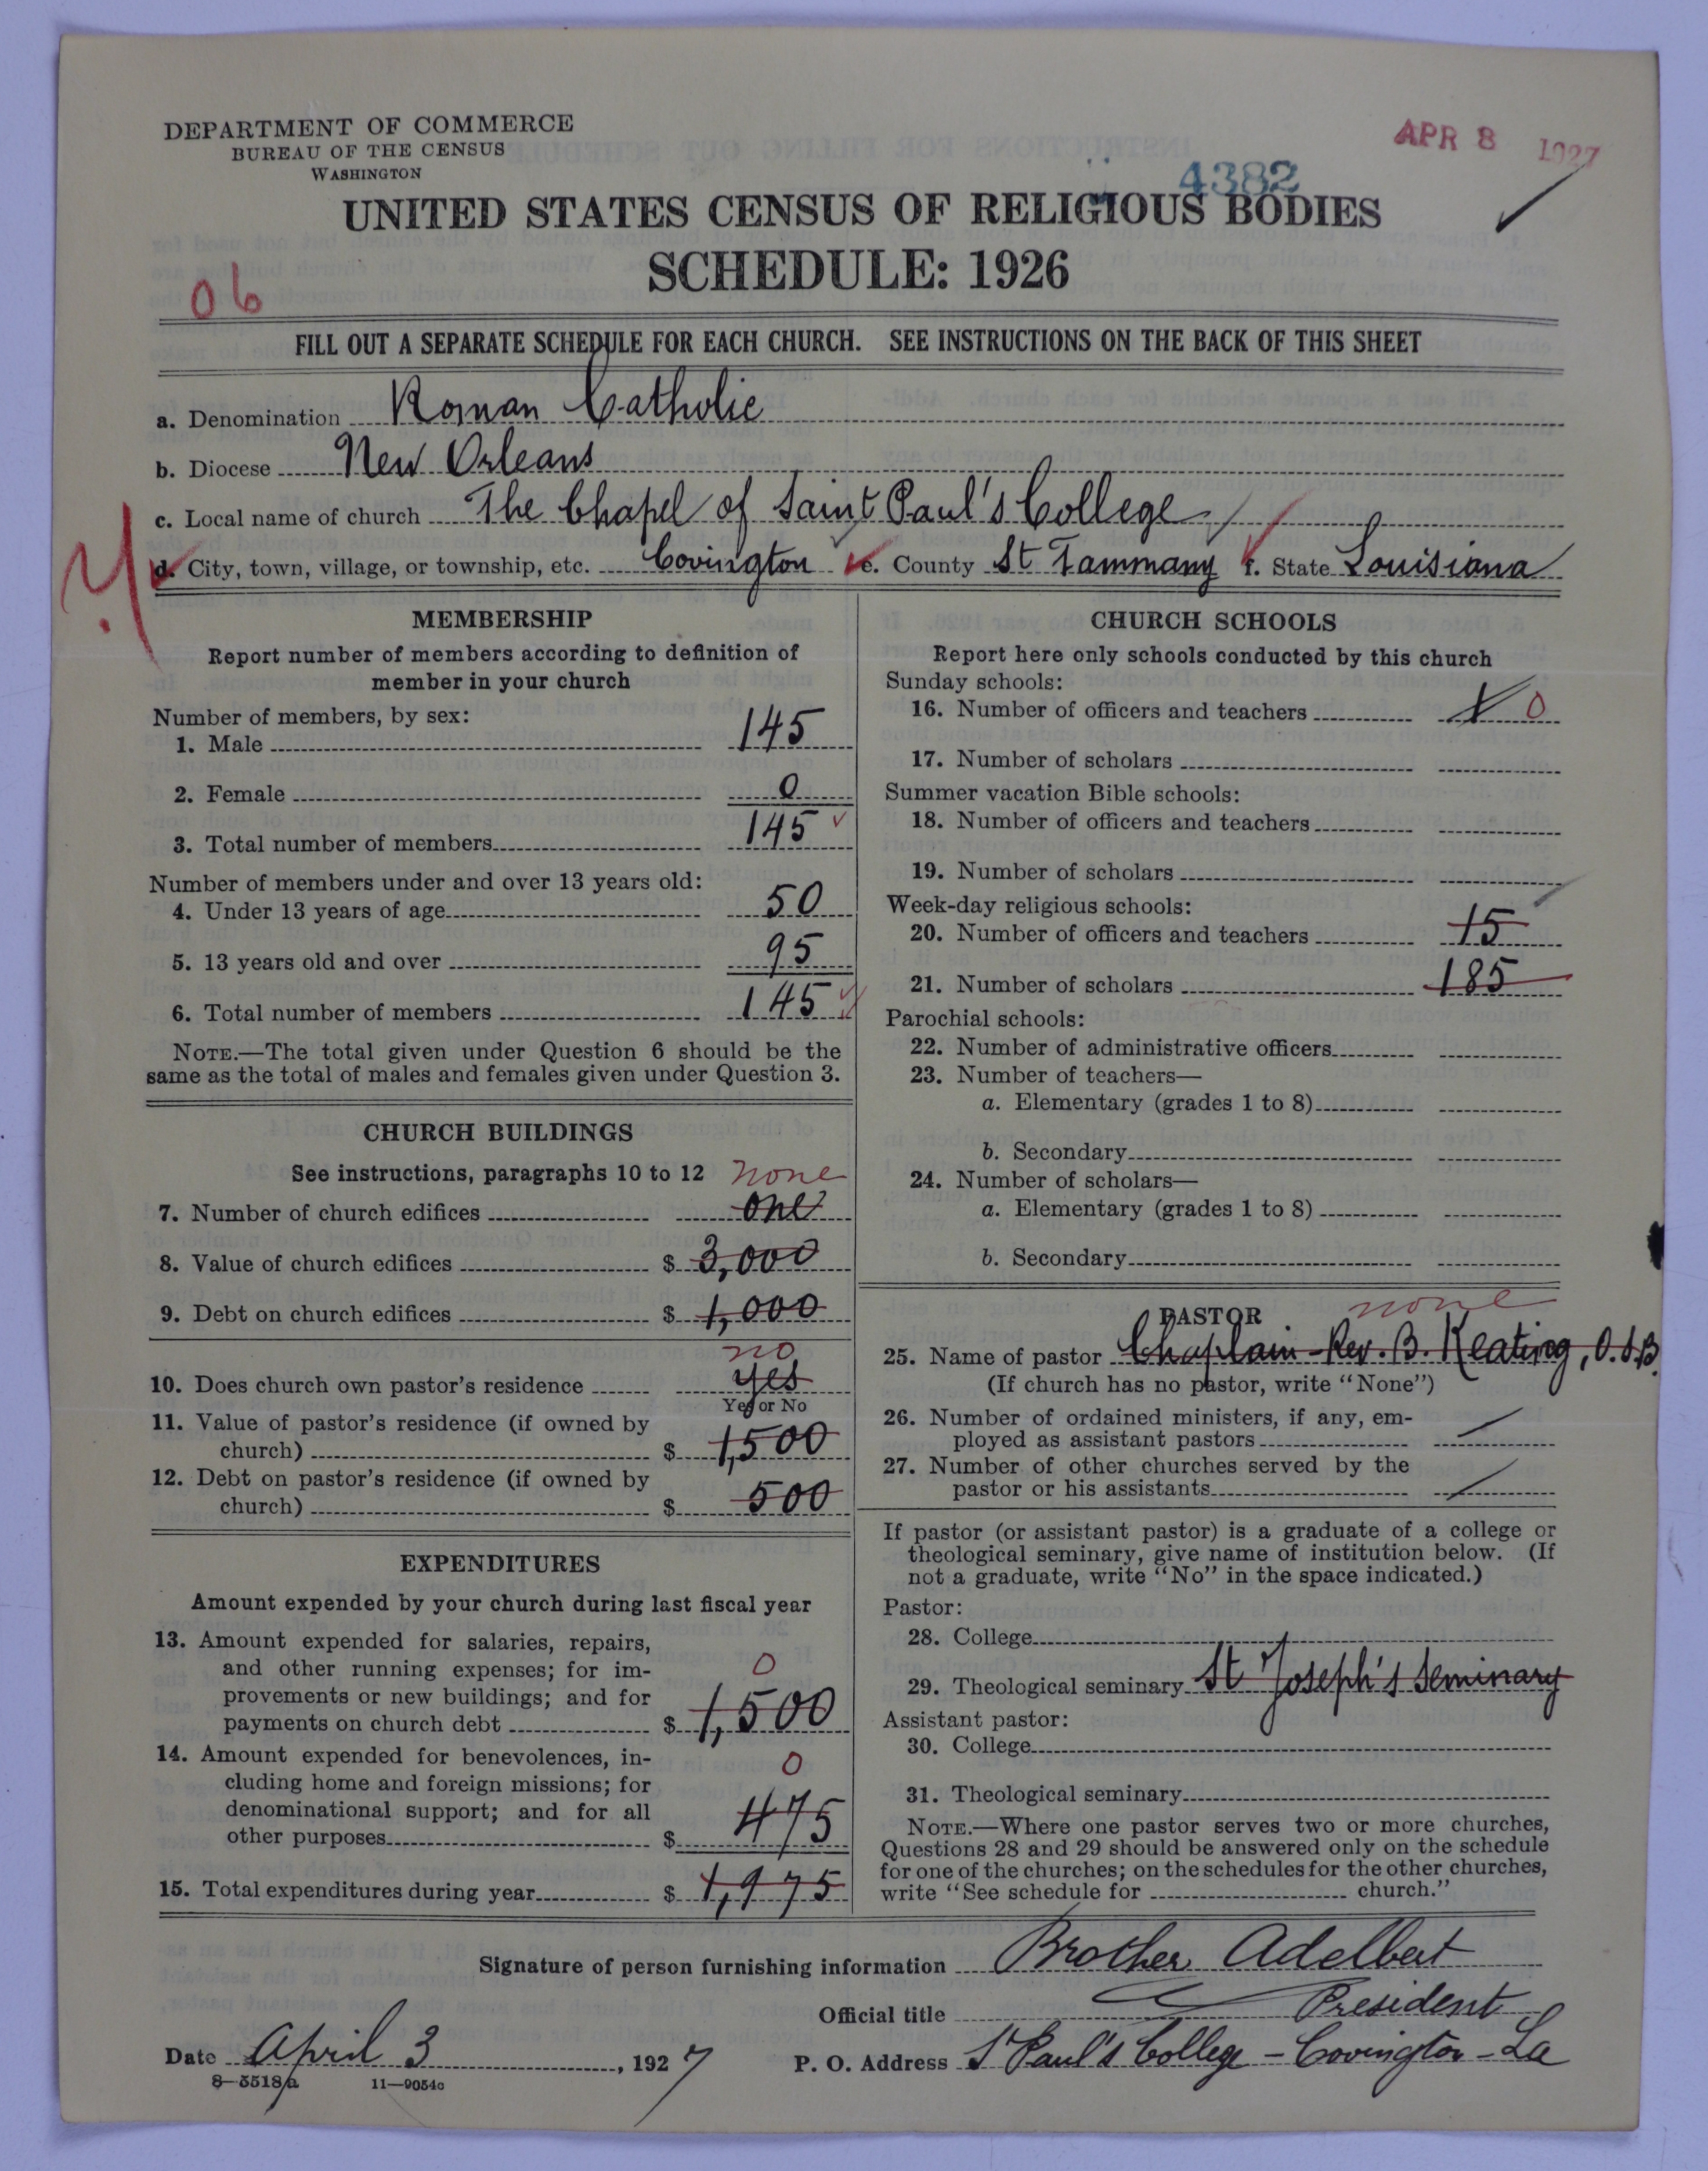 DEPARTMENT OF COMMERCE
BUREAU OF THE CENSUS
WASHINGTON
APR 8 1927
4382
UNITED STATES CENSUS OF RELIGIOUS BODIES
SCHEDULE: 1926
06
FILL OUT A SEPARATE SCHEDULE FOR EACH CHURCH. SEE INSTRUCTIONS ON THE BACK OF THIS SHEET
a. Denomination Roman Catholic
b. Diocese New Orleans
c. Local name of church The Chapel of Saint Paul's College
d. City, town, village, or township, etc. Covington e. County St Tammany f. State Louisiana
MEMBERSHIP
Report number of members according to definition of
member in your church
Number of members, by sex:
1. Male 145
2. Female 0
3. Total number of members 145
Number of members under and over 13 years old:
4. Under 13 years of age 50
5. 13 years old and over 95
6. Total number of members 145
NOTE.—The total given under Question 6 should be the
same as the total of males and females given under Question 3.
CHURCH BUILDINGS
See instructions, paragraphs 10 to 12 none
7. Number of church edifices one
8. Value of church edifices $ 3,000
9. Debt on church edifices $ 1,000
no
10. Does church own pastor's residence yes
Yes or No
11. Value of pastor's residence (if owned by
church) $ 1,500
12. Debt on pastor's residence (if owned by
church) $ 500
EXPENDITURES
Amount expended by your church during last fiscal year
13. Amount expended for salaries, repairs,
and other running expenses; for im- 0
provements or new buildings; and for
payments on church debt $ 1,500
14. Amount expended for benevolences, in- 0
cluding home and foreign missions; for
denominational support; and for all
other purposes $ 475
15. Total expenditures during year $ 1,975
CHURCH SCHOOLS
Report here only schools conducted by this church
Sunday schools:
16. Number of officers and teachers 0
17. Number of scholars
Summer vacation Bible schools:
18. Number of officers and teachers
19. Number of scholars
Week-day religious schools:
20. Number of officers and teachers 15
21. Number of scholars 185
Parochial schools:
22. Number of administrative officers
23. Number of teachers—
a. Elementary (grades 1 to 8)
b. Secondary
24. Number of scholars—
a. Elementary (grades 1 to 8)
b. Secondary
PASTOR none
25. Name of pastor Chaplain - Rev. B. Keating, O.S.B.
(If church has no pastor, write "None")
26. Number of ordained ministers, if any, em-
ployed as assistant pastors
27. Number of other churches served by the
pastor or his assistants
If pastor (or assistant pastor) is a graduate of a college or
theological seminary, give name of institution below. (If
not a graduate, write "No" in the space indicated.)
Pastor:
28. College
29. Theological seminary St Joseph's Seminary
Assistant pastor:
30. College
31. Theological seminary
NOTE.—Where one pastor serves two or more churches,
Questions 28 and 29 should be answered only on the schedule
for one of the churches; on the schedules for the other churches,
write "See schedule for church."
Signature of person furnishing information Brother Adelbert
Official title President
Date April 3, 1927 P. O. Address St Paul's College - Covington - La
8—5518a 11—9054c